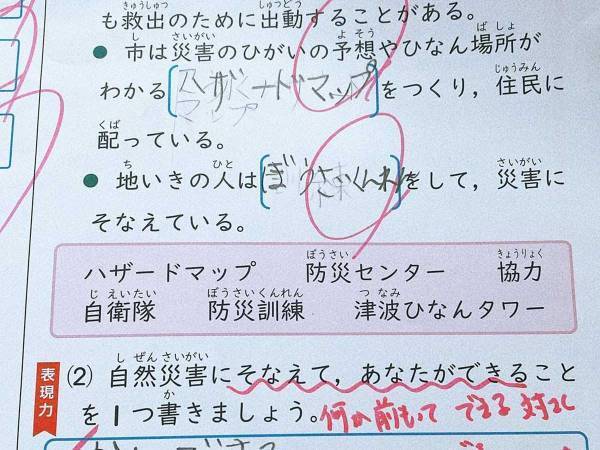 も救出のために出動することがある。
● 市は災害のひがいの予想やひなん場所が
わかる[ハザードマップ]をつくり，住民に
配っている。
● 地いきの人は[ぼうさいくんれん]をして，災害に
そなえている。
ハザードマップ 防災センター 協力
自衛隊 防災訓練 津波ひなんタワー
表現力 (2) 自然災害にそなえて，あなたができること
を1つ書きましょう。何か前もって できる 対さく